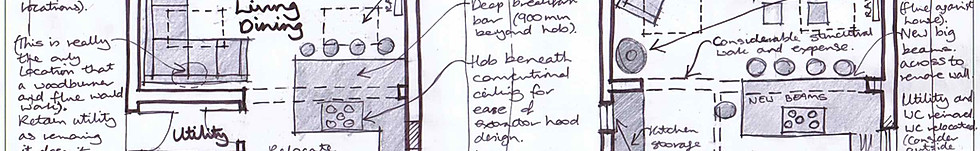 locations).
(This is really
the only
location that
a woodburner
and flue would
work).
Retain utility
as removing
it doesn't
Living
Dining
Utility
Relocate
Deep breakfast
bar (900mm
beyond hob).
Hob beneath
conventional
ceiling for
ease of
extractor hood
design.
Considerable structural
work and expense.
NEW BEAMS
Kitchen
storage
(flue against
house).
New big
beams
across to
remove wall
Utility and
WC removed
WC relocated
(Consider
outside